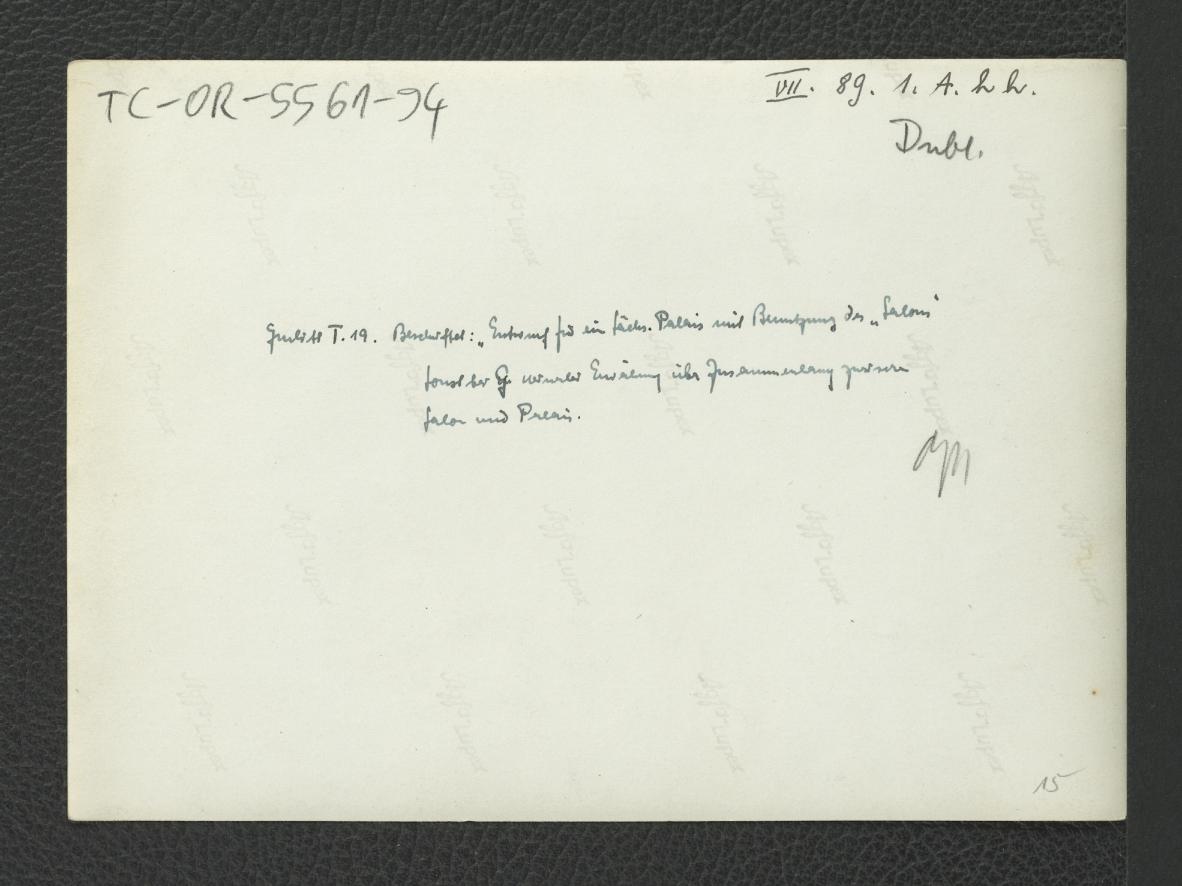 TC-OR-5561-94
VII. 89. 1. A. h h.
Dubl.
Gurlitt T. 19. Beschriftet: „Entwurf für ein sächs. Palais mit Benutzung des „Salons"
sonst bei G. über Zusammenhang zwischen
Salon und Palais.
15